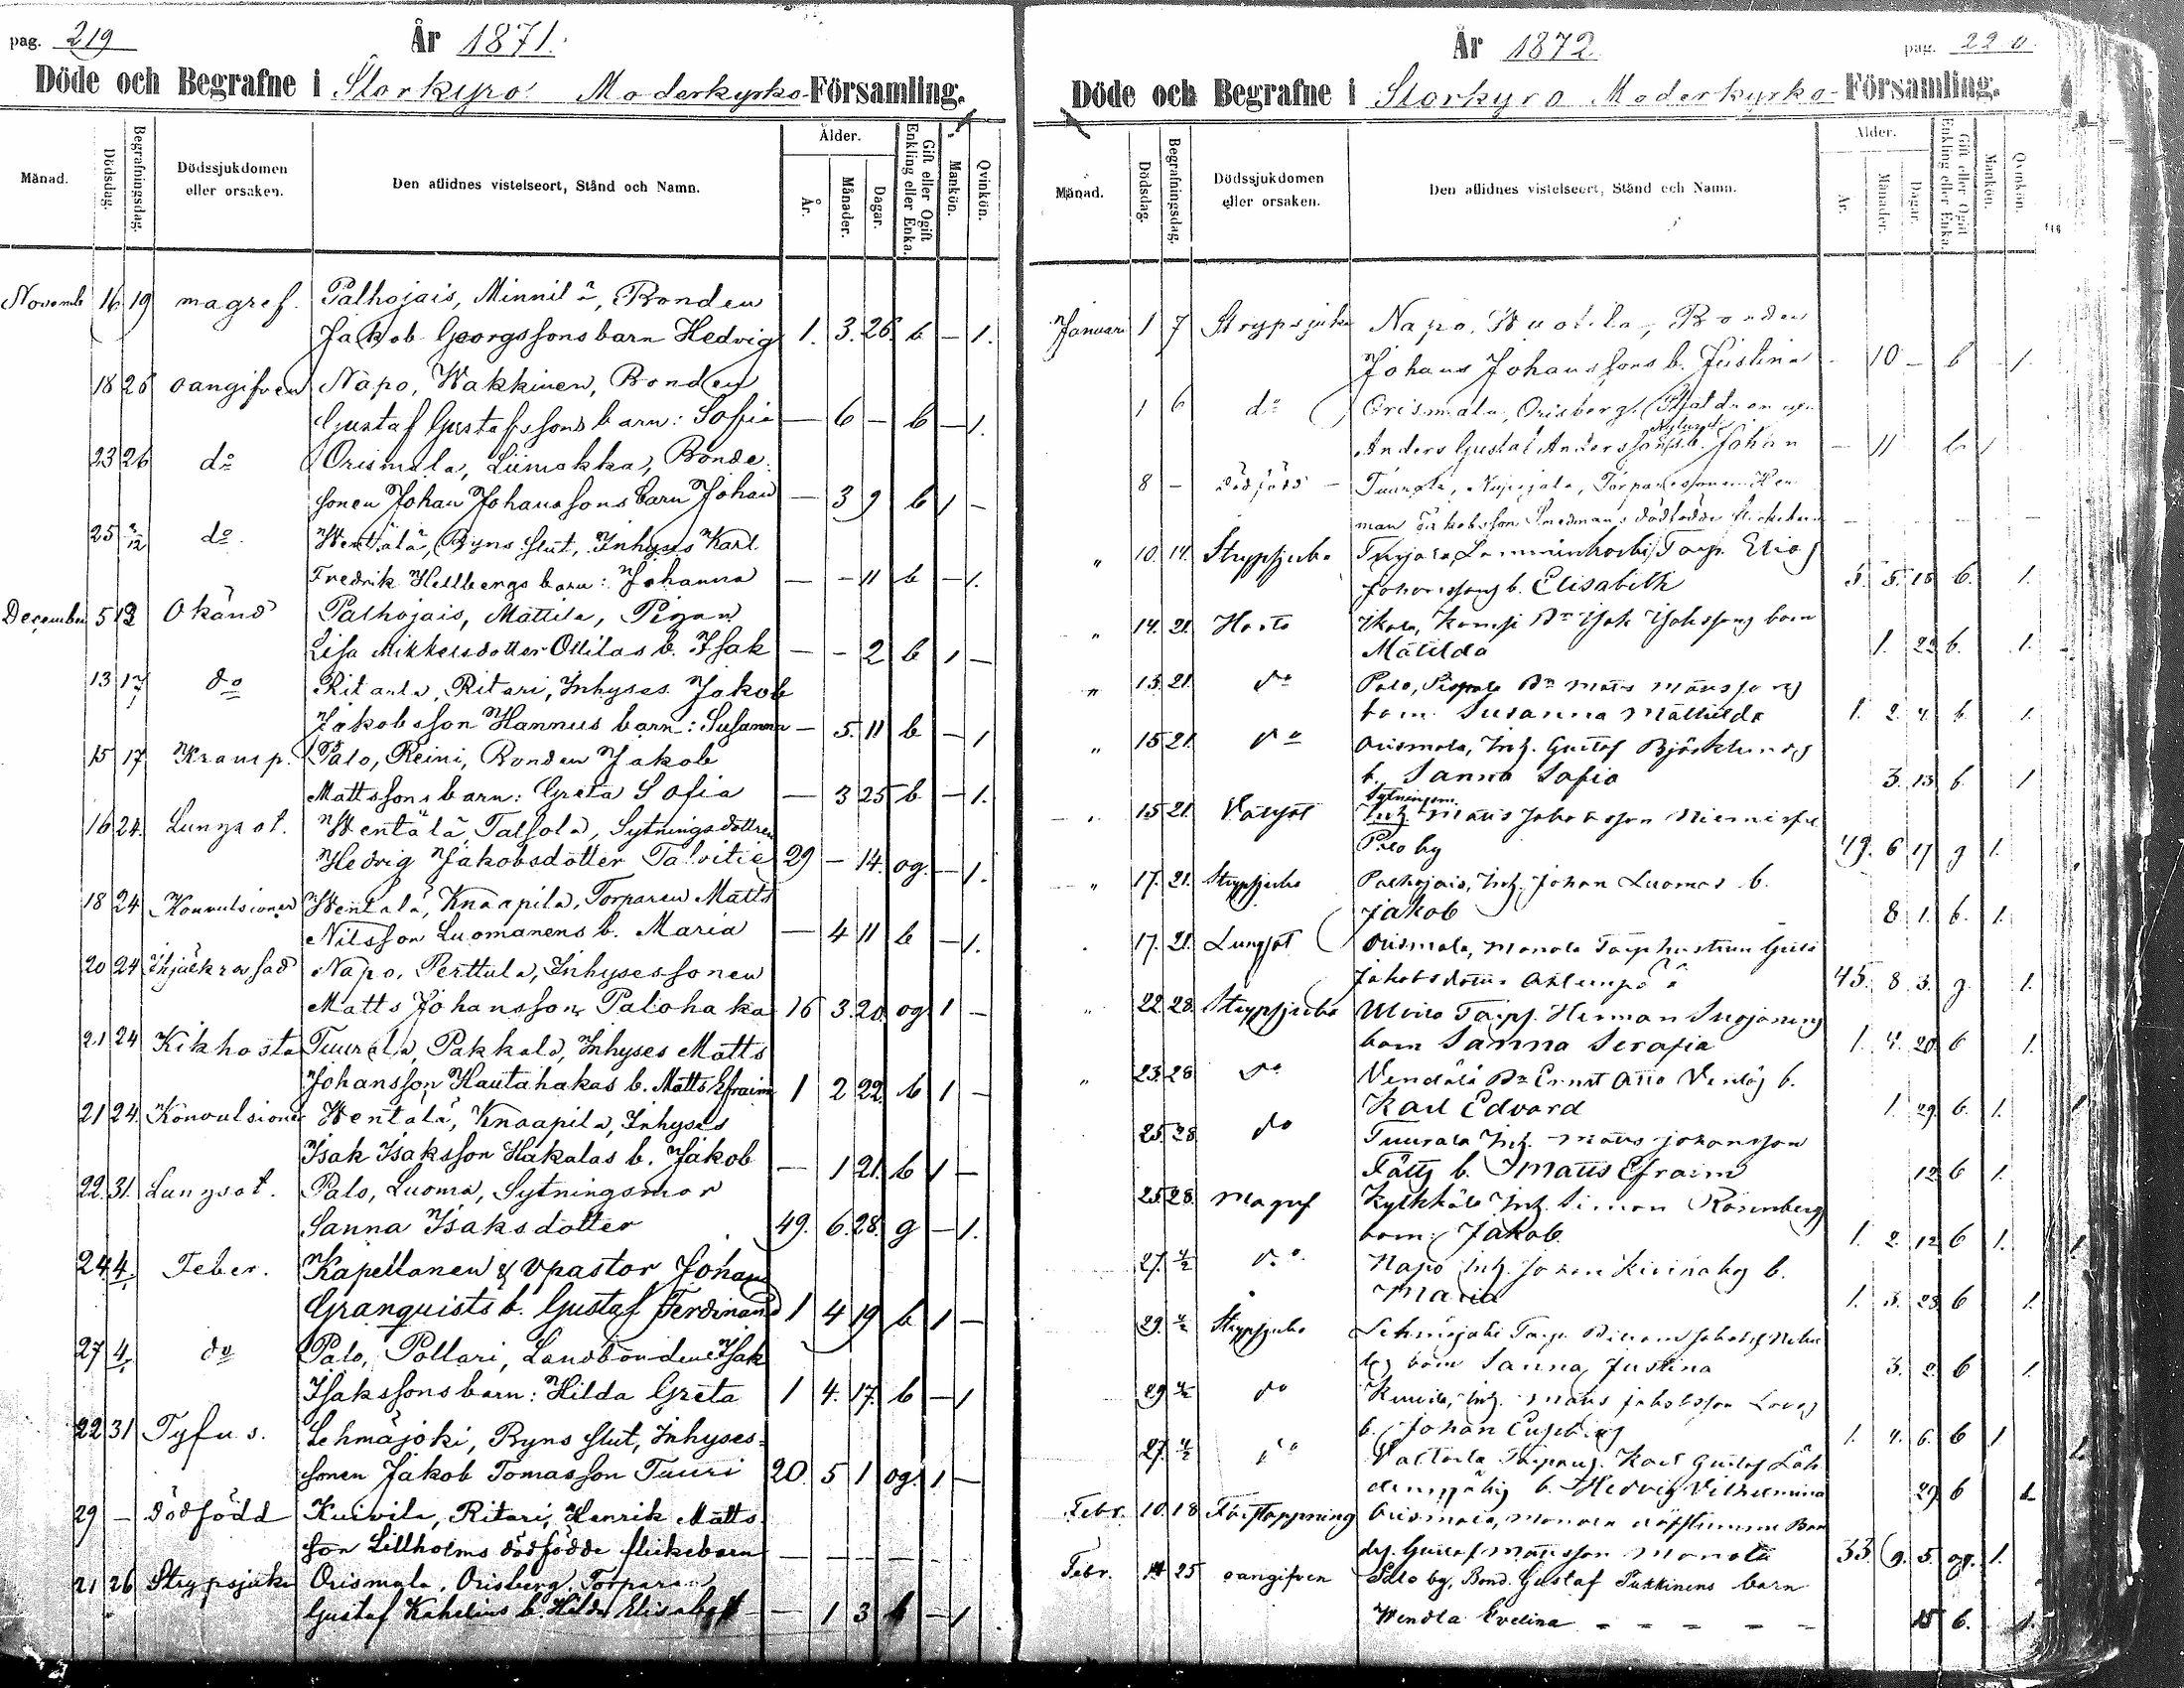 pag. 219
År 1871.
Döde och Begrafne i Storkyro Moderkyrko-Församling.
Månad. Dödsdag. Begrafningsdag. Dödssjukdomen eller orsaken. Den aflidnes vistelseort, Stånd och Namn. Ålder. År. Månader. Dagar. Gift eller Ogift Enkling eller Enka. Mankön. Qvinkön.
Novemb 16 19 magref. Palhojais, Minnilä, Bonden
Jakob Georgssons barn Hedvig 1. 3. 26. b — 1.
18 26 oangifven Napo, Wakkinen, Bonden
Gustaf Gustafssons barn: Sofia — 6 — b — 1.
23 26 do Orismala, Liimakka, Bonde-
sonen Johan Johanssons barn Johan — 3 9 b 1 —
25 3/12 do. Wentälä, Byns slut, Inhyses Karl
Fredrik Hellbergs barn: Johanna — — 11 b — 1.
December 5 12 Okänd Palhojais, Mattila, Pigan
Lisa Mikkelsdotter Ollilas b. Isak — — 2 b 1 —
13 17 do Ritaala, Ritari, Inhyses Jakob
Jakobsson Hannus barn: Susanna — 5. 11 b — 1
15 17 Kramp. Palo, Reini, Bonden Jakob
Mattssons barn: Greta Sofia — 3 25 b — 1.
16 24. Lungsot. Wentälä Talsola, Sytningsdottren
Hedvig Jakobsdotter Talvitie 29 — 14. og. — 1.
18 24 Konvulsioner Wentälä, Knaapila, Torparen Matts
Nilsson Luomanens b. Maria — 4 11 b — 1.
20 24 Ihjälkrossad Napo, Perttula, Inhysessonen
Matts Johansson Palohaka 16 3. 20. og 1 —
21 24 Kikhosta Tuurala, Pakkala, Inhyses Matts
Johansson Hautahakas b. Matts Efraim 1 2 22. b 1 —
21 24. Konvulsioner Wentälä, Knaapila, Inhyses
Isak Isaksson Hakalas b. Jakob — 1 21. b 1 —
22. 31. Lungsot. Palo, Luoma, Sytningsmor
Sanna Isaksdotter 49. 6. 28. g — 1.
24. 4. Feber. Kapellanen & Vpastor Johan
Granquists b. Gustaf Ferdinand 1 4 19 b 1 —
27 4. do Palo, Pollari, Landbonden Isak
Isakssons barn: Hilda Greta 1 4. 17. b — 1
22 31 Tyfus. Lehmäjoki, Byns slut, Inhyses-
sonen Jakob Tomasson Tuuri 20. 5 1 og. 1 —
29 — dödfödd Kuivila, Ritari, Henrik Matts-
son Lillholms dödfödde flickebarn — — — — — —
21 26 Strypsjuka Orismala, Orisberg, Torparen
Gustaf Kahelins b. Hilda Elisabeth — 1 3 b — 1
År 1872.
pag. 220.
Döde och Begrafne i Storkyro Moderkyrko-Församling.
Månad. Dödsdag. Begrafningsdag. Dödssjukdomen eller orsaken. Den aflidnes vistelseort, Stånd och Namn. Ålder. År. Månader. Dagar. Gift eller Ogift Enkling eller Enka. Mankön. Qvinkön.
Januari 1 7 Strypsjuka Napo, Wuolila, Bonden
Johans Johanssons b. Justina — 10 — b — 1.
1 6 do Orismala, Orisberg,
Anders Gustaf Anderssons b. Johan — 11 b 1
8 — dödfödd — Tuurala, Torparesonen Her-
man Jakobsson Smedmans dödfödde flickebarn — — — —
" 10. 14. Strypsjuka Torp. Elias
Johanssons b. Elisabeth 3. 5. 18 b. 1.
" 14. 21. Hosta Ikola, Kempi Bn Isak Isakssons barn
Matilda 1. 23 b. 1.
" 13. 21. do Palo, Bn Matts Mattssons
barn Susanna Mathilda 1. 2. 4. b. 1.
" 15 21. do Orismala, Inh. Gustaf Björklunds
b. Sanna Sofia 3. 13 b. 1
15 21. Sytningsm.
Inh. Matts Jakobsson
Palo by 49. 6 17 g 1.
" 17. 21. Strypsjuka Palhojais, Inh. Johan Luomas b.
Jakob 8 1. b. 1.
17. 21. Lungsot Orismala, Manola Torphustrun
Jakobsdotter 45. 8 3. g. 1.
" 22 28. Strypsjuka Torp. Herman
barn Sanna Serafia 1. 4. 20 b 1.
" 23. 28 do Vendälä Bn Ernst Otto b.
Karl Edvard 1. 29. b. 1.
25 28. do Tuurala Inh. Matts Johansson
b. Matts Efraim 12. b 1.
25. 28. Magref Kylkkälä Inh. Simon Rosenberg
barn: Jakob. 1. 2. 12 b 1.
27. 4/2 do. Napo Inh. b.
Maria 1. 3. 28 b 1.
29. 4/2 Strypsjuka Lehmäjoki
barn Sanna Justina 3. 2. b 1.
29 4/2 do Kuivila, Inh. Matts Jakobsson
b. Johan 1. 4. 6. b 1
27. 4/2 do Karl Gustaf
b. Hedvig Vilhelmina 29 b 1.
Febr. 10. 18 Förstoppning Orismala, Manola
Gustaf Mattsson Manola 33. 9. 5. og. 1.
Febr. 14 25 oangifven Palo by, Bond. Gustaf Pukkinens barn
Wendla Evelina — — — — — 15 b. 1.